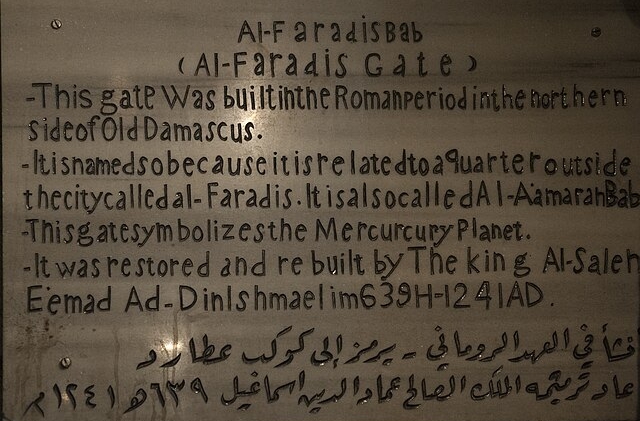 Al-FaradisBab
(Al-Faradis Gate)
-This gate Was builtintheRomanperiodinthe northern
sideofOldDamascus.
-Itisnamedsobecauseitisrelatedtoaquarteroutside
thecitycalledal-Faradis.ItisalsocalledAl-AamarahBab
-ThisgatesymbolizestheMercurcuryPlanet.
-It was restored and re built by The king Al-Saleh
E'emad Ad-DinIshmaelim639H-1241AD.
في العهد الروماني - يرمز إلى كوكب عطارد
الملك الصالح عماد الدين اسماعيل ٦٣٩ه ١٢٤١م